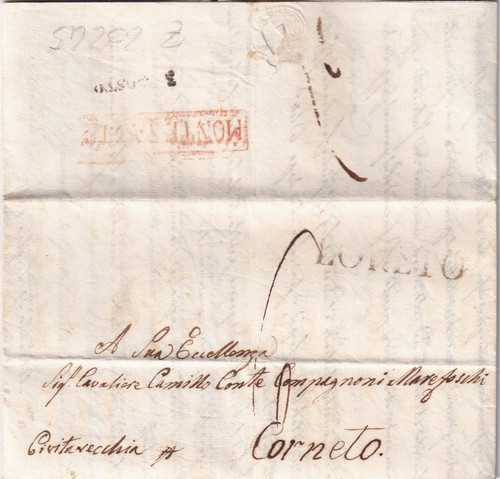 Z 20265
3 AGOSTO
LORETO
A Sua Eccellenza
Sigr. Cavaliere Camillo Conte Compagnoni Marefoschi
Civitavecchia
Corneto.